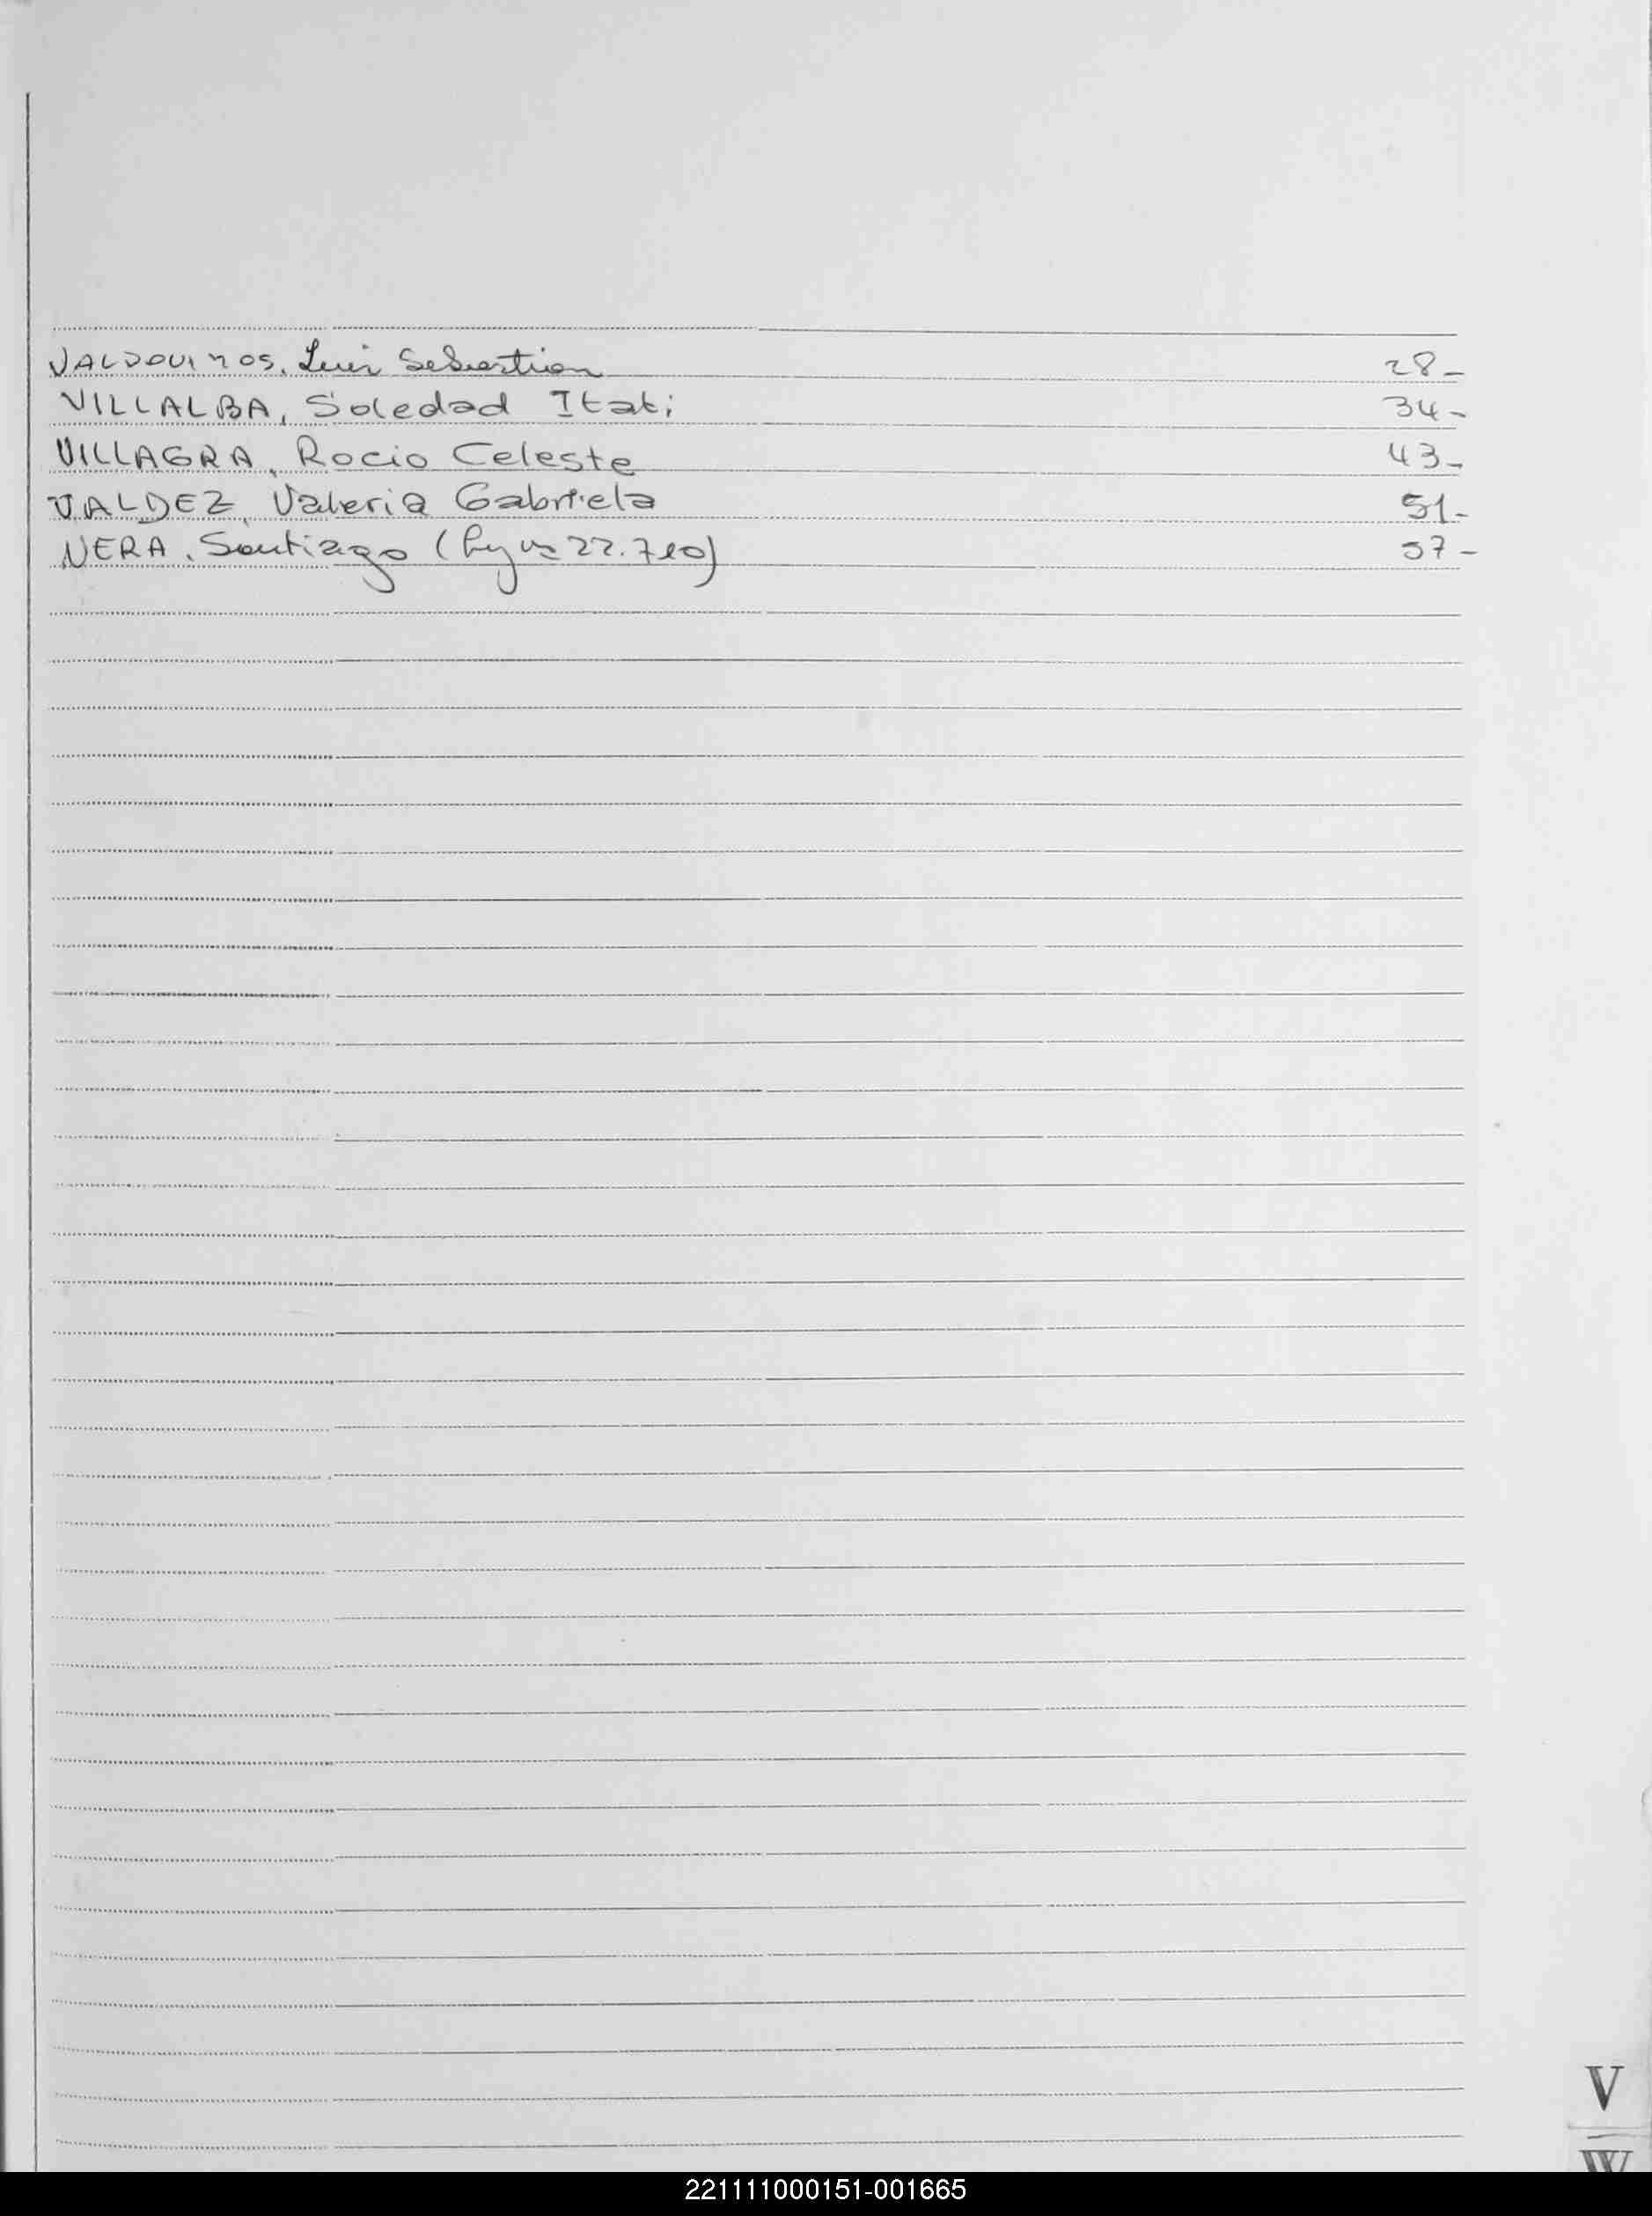 VALDOVINOS, Luis Sebastian 28-
VILLALBA, Soledad Itati 34-
VILLAGRA, Rocio Celeste 43-
VALDEZ, Valeria Gabriela 51-
VERA, Santiago (Ley 22.710) 57-
V
W
221111000151-001665